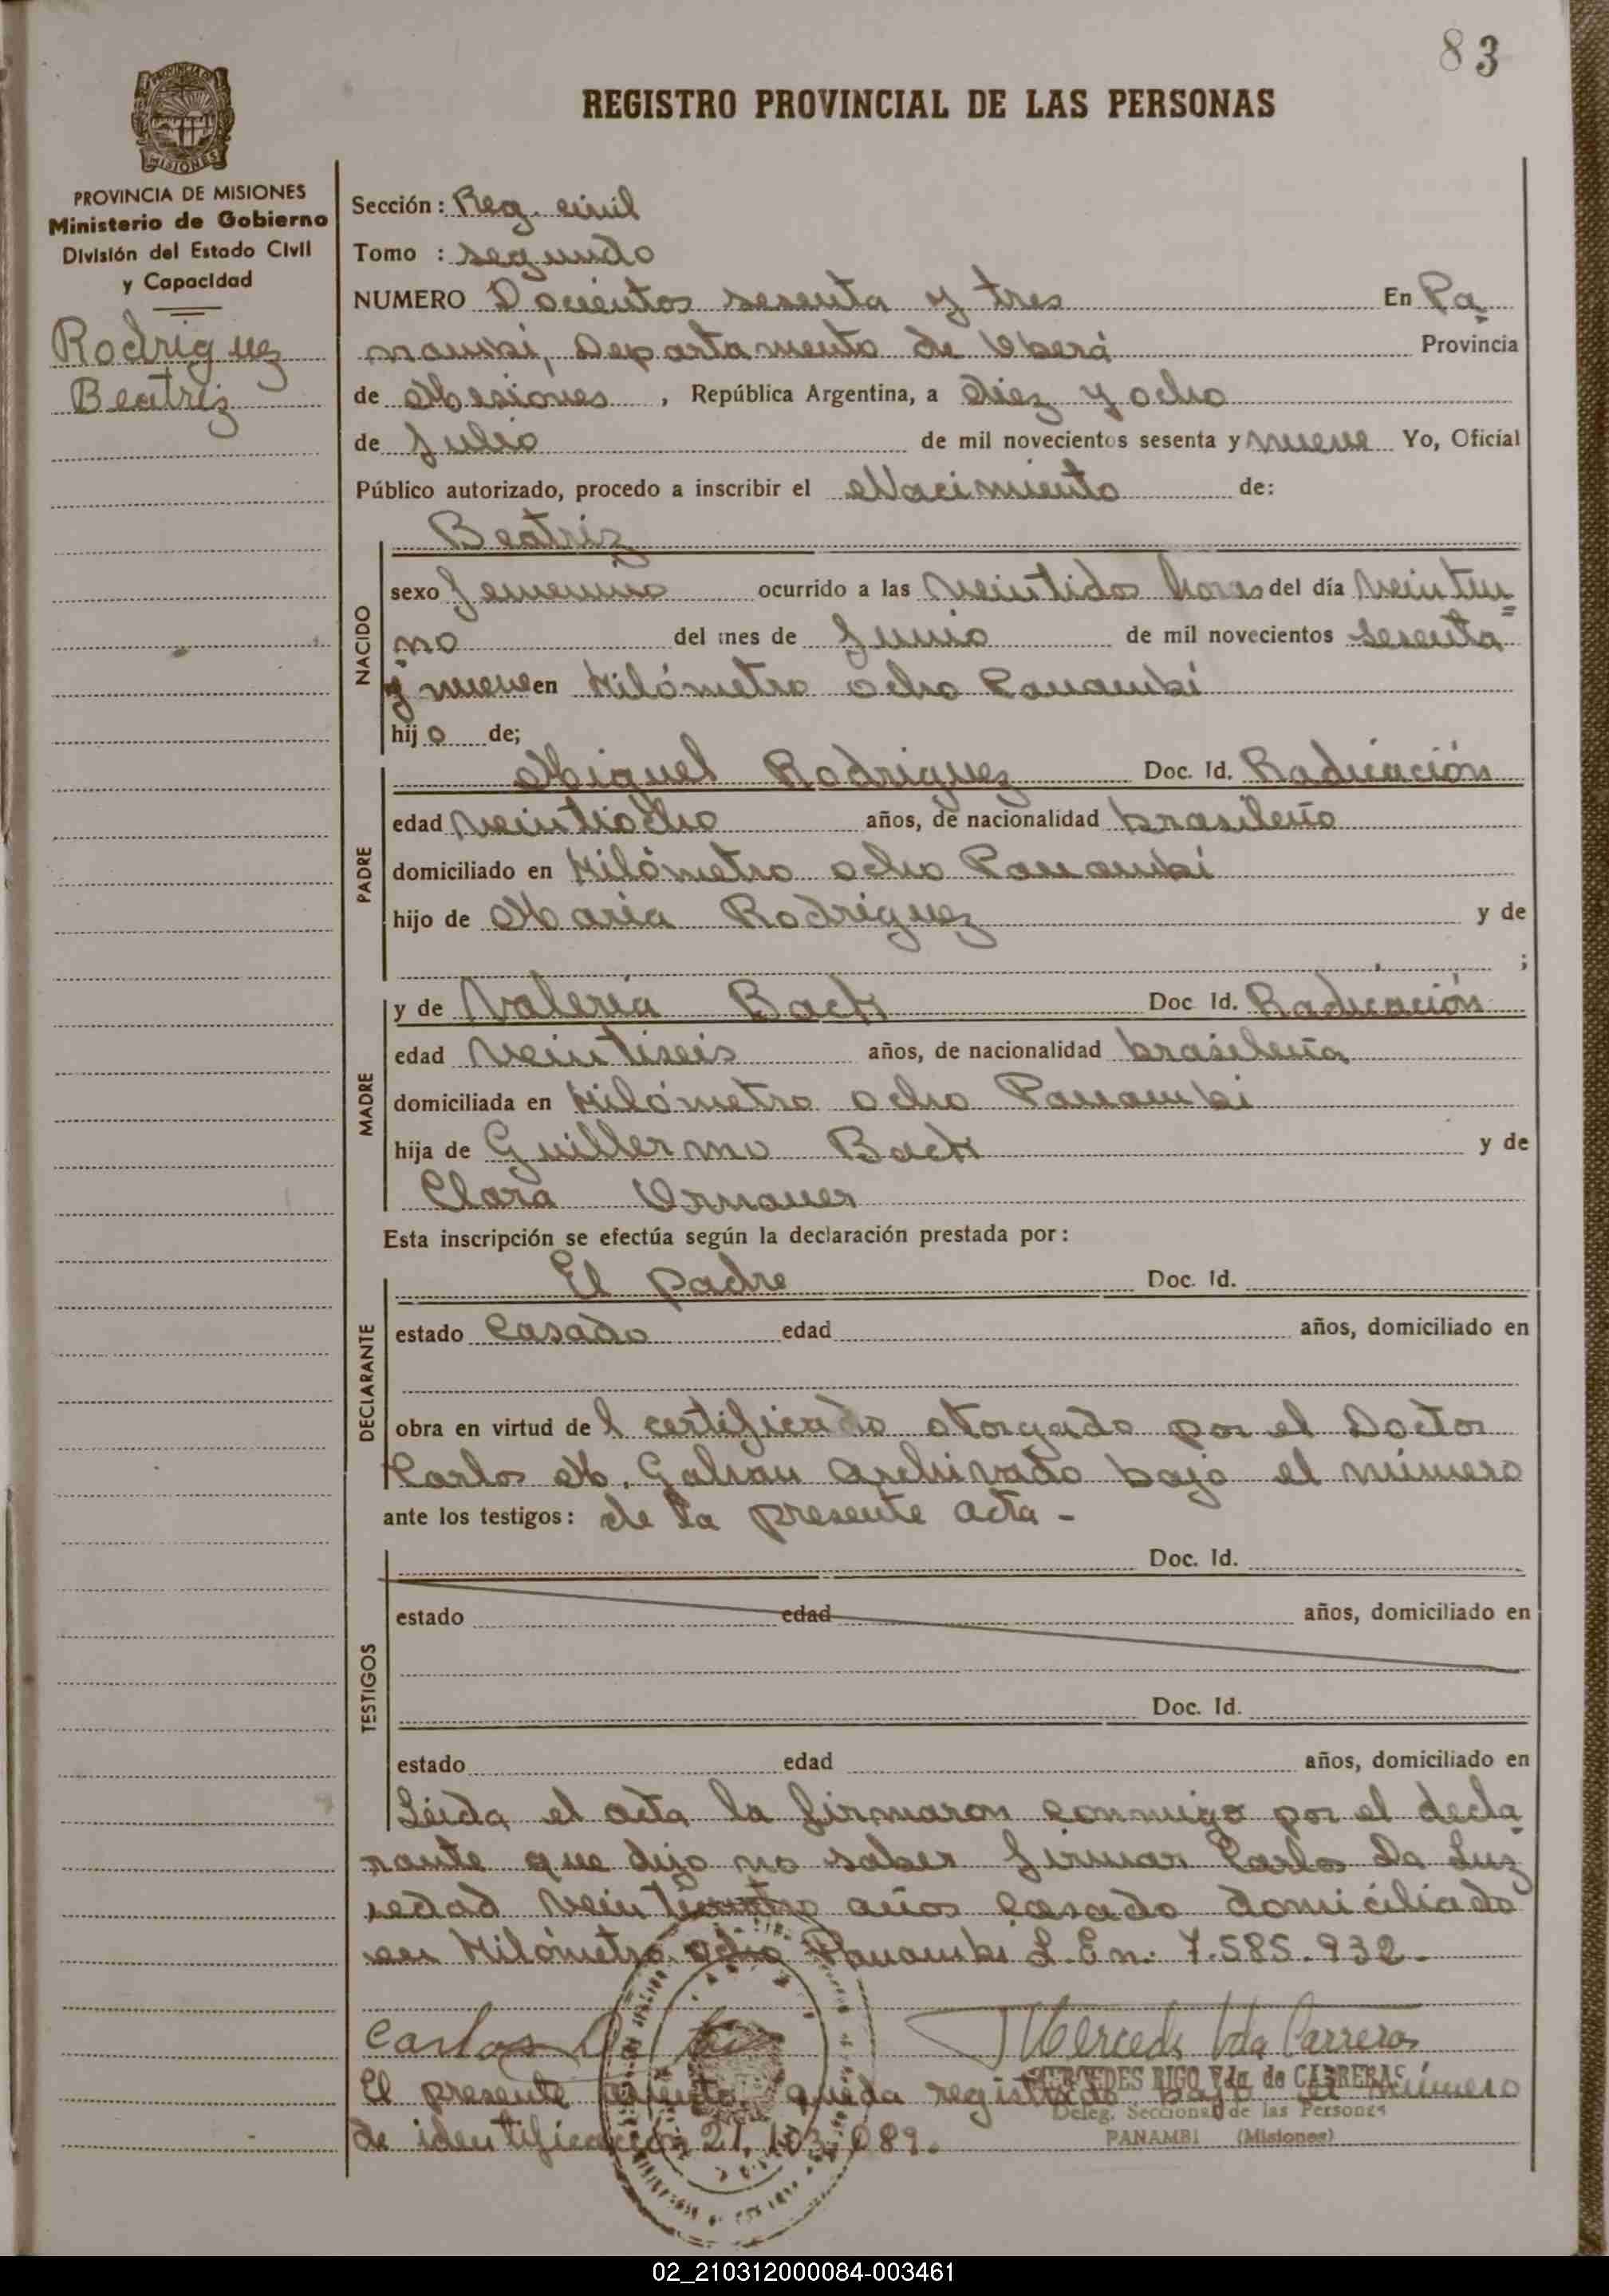 83
REGISTRO PROVINCIAL DE LAS PERSONAS
PROVINCIA DE MISIONES
Ministerio de Gobierno
División del Estado Civil
y Capacidad
Rodriguez
Beatriz
Sección: Reg. civil
Tomo : segundo
NUMERO Docientos sesenta y tres En Pa
nambi, Departamento de Oberá Provincia
de Misiones, República Argentina, a diez y ocho
de Julio de mil novecientos sesenta y nueve Yo, Oficial
Público autorizado, procedo a inscribir el Nacimiento de:
NACIDO
Beatriz
sexo femenino ocurrido a las veintidos horas del día veintiu=
no del mes de Junio de mil novecientos sesenta
y nueve en Kilómetro ocho Panambí
hijo de;
PADRE
Miguel Rodriguez Doc. Id. Radicación
edad veintiocho años, de nacionalidad brasileño
domiciliado en Kilómetro ocho Panambí
hijo de Maria Rodriguez y de
;
MADRE
y de Valeria Back Doc Id. Radicación
edad veintiseis años, de nacionalidad brasileña
domiciliada en Kilómetro ocho Panambi
hija de Guillermo Back y de
Clara Ornauer
Esta inscripción se efectúa según la declaración prestada por:
DECLARANTE
El padre Doc. Id.
estado Casado edad años, domiciliado en
obra en virtud del certificado otorgado por el Doctor
Carlos M. Galvan archivado bajo el número
ante los testigos: de la presente acta -
TESTIGOS
Doc. Id.
estado edad años, domiciliado en
Doc. Id.
estado edad años, domiciliado en
Leida el acta la firmaron conmigo por el decla
rante que dijo no saber firmar Carlos Da Luz
edad veinticuatro años casado domiciliado
en Kilómetro ocho Panambi L.E n: 7.585.932.
Carlos Da Luz Mercedes Vda Carreras
MERCEDES RIGO Vda de CARRERAS
El presente asiento queda registrado bajo el número
Deleg. Seccional de las Personas
de identificación 21.103.089.
PANAMBI (Misiones)
02_210312000084-003461